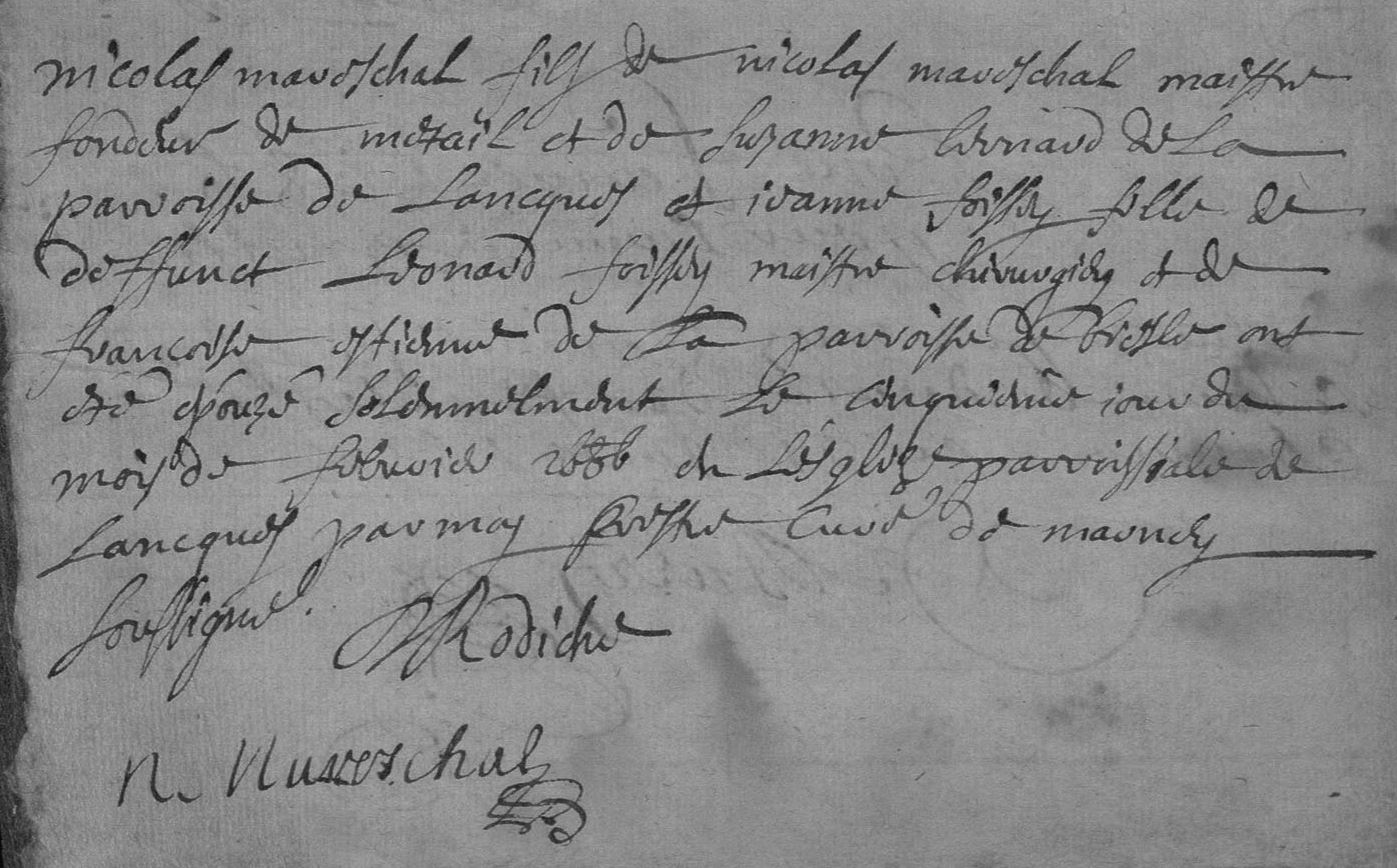 nicolas mareschal filz de nicolas mareschal maistre
fondeur de metail et de suzanne bernard de La
parroisse de Lancques et ieanne foissey fille de
deffunct Leonard foissey maistre chirurgien et de
francoise estienne de La parroisse de biesle ont
eté epouzé solemnelment Le cinquiéme iour du
mois de febvrier 1686 en L'esglize parroissiale de
Lancques par moy prestre Curé de marney
soussigné. Rodiche
N. Mareschal